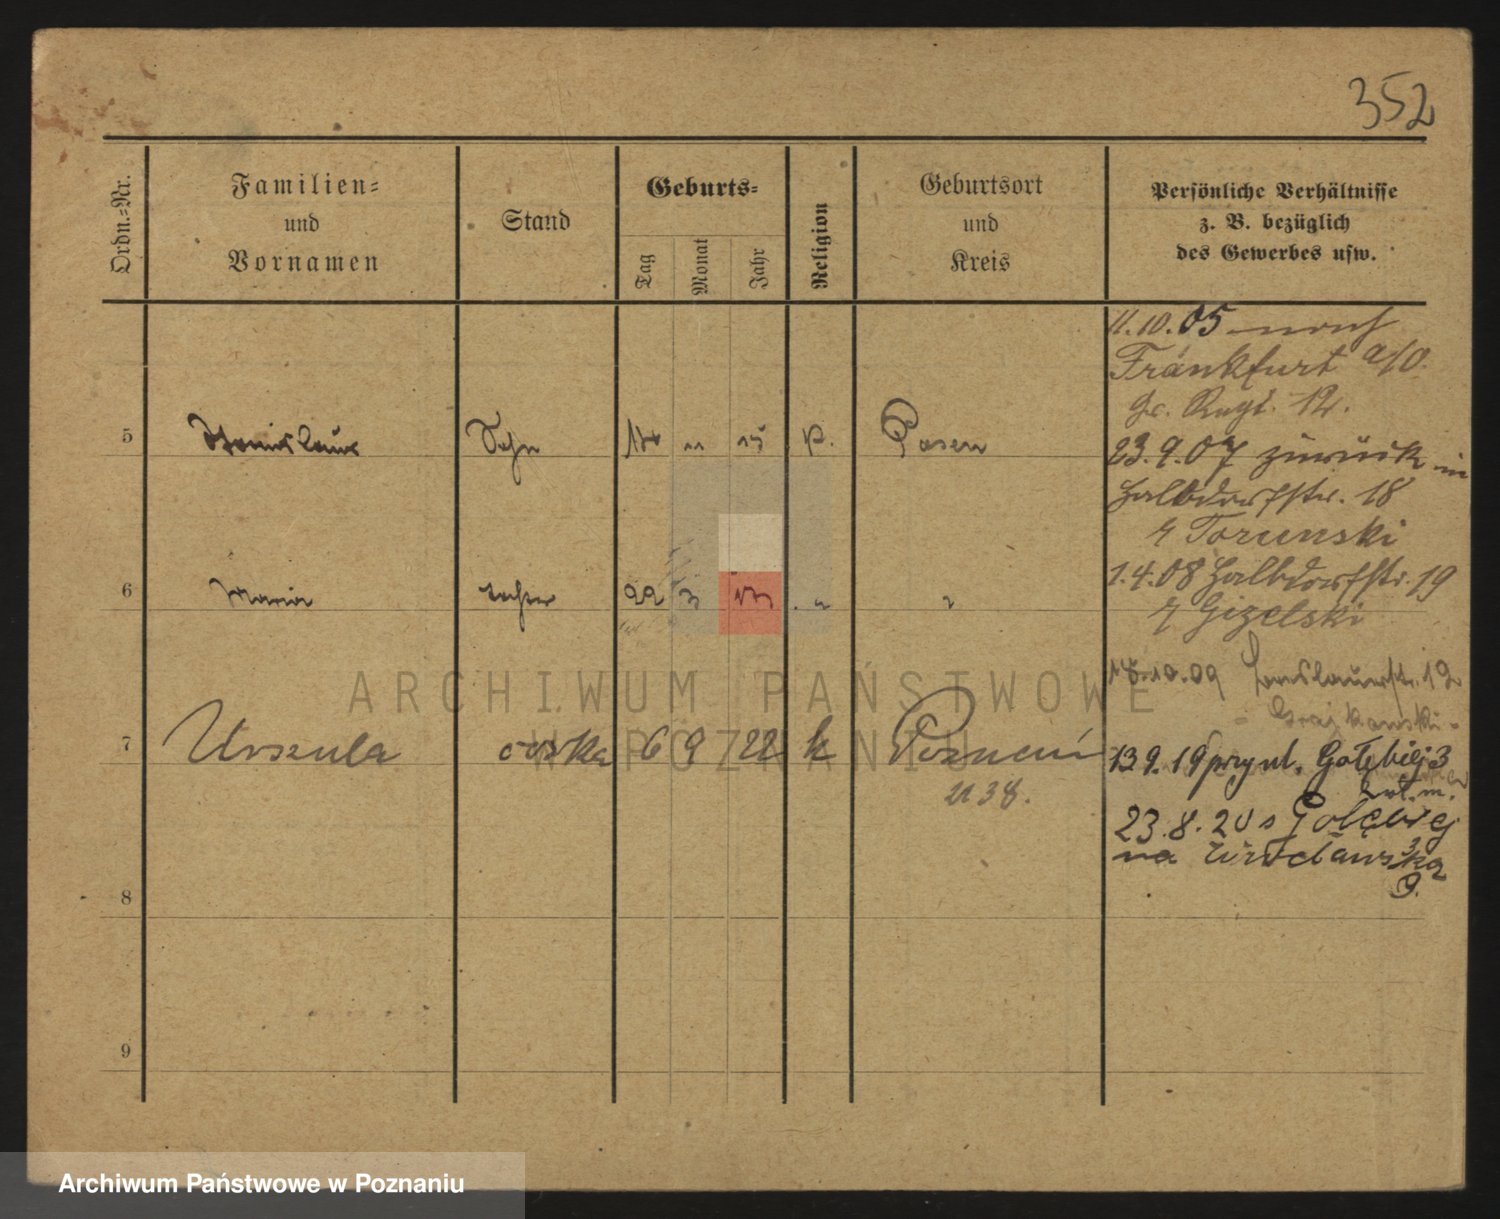 352
Ordn.-Nr.
Familien-
und
Vornamen
Stand
Geburts-
Tag
Monat
Jahr
Religion
Geburtsort
und
Kreis
Persönliche Verhältnisse
z. B. bezüglich
des Gewerbes usw.
11.10.05 nach
Frankfurt a/O.
Gr. Regt. 12.
5 Stanislaus Sohn 11 15 Posen
23.9.07 zurück in
Halbdorfstr. 18
Torunski
6 Maria Tochter 22 3 " "
1.4.08 Halbdorfstr. 19
Gizelski
10.09 12
7 Urszula córka 6 9 22 k Poznań
13.9.19 przyb. Gołębiej 3
23.8.20 s Gołębiej 3
na Wrocławska
9.
8
9
ARCHIWUM PAŃSTWOWE
W POZNANIU
Archiwum Państwowe w Poznaniu